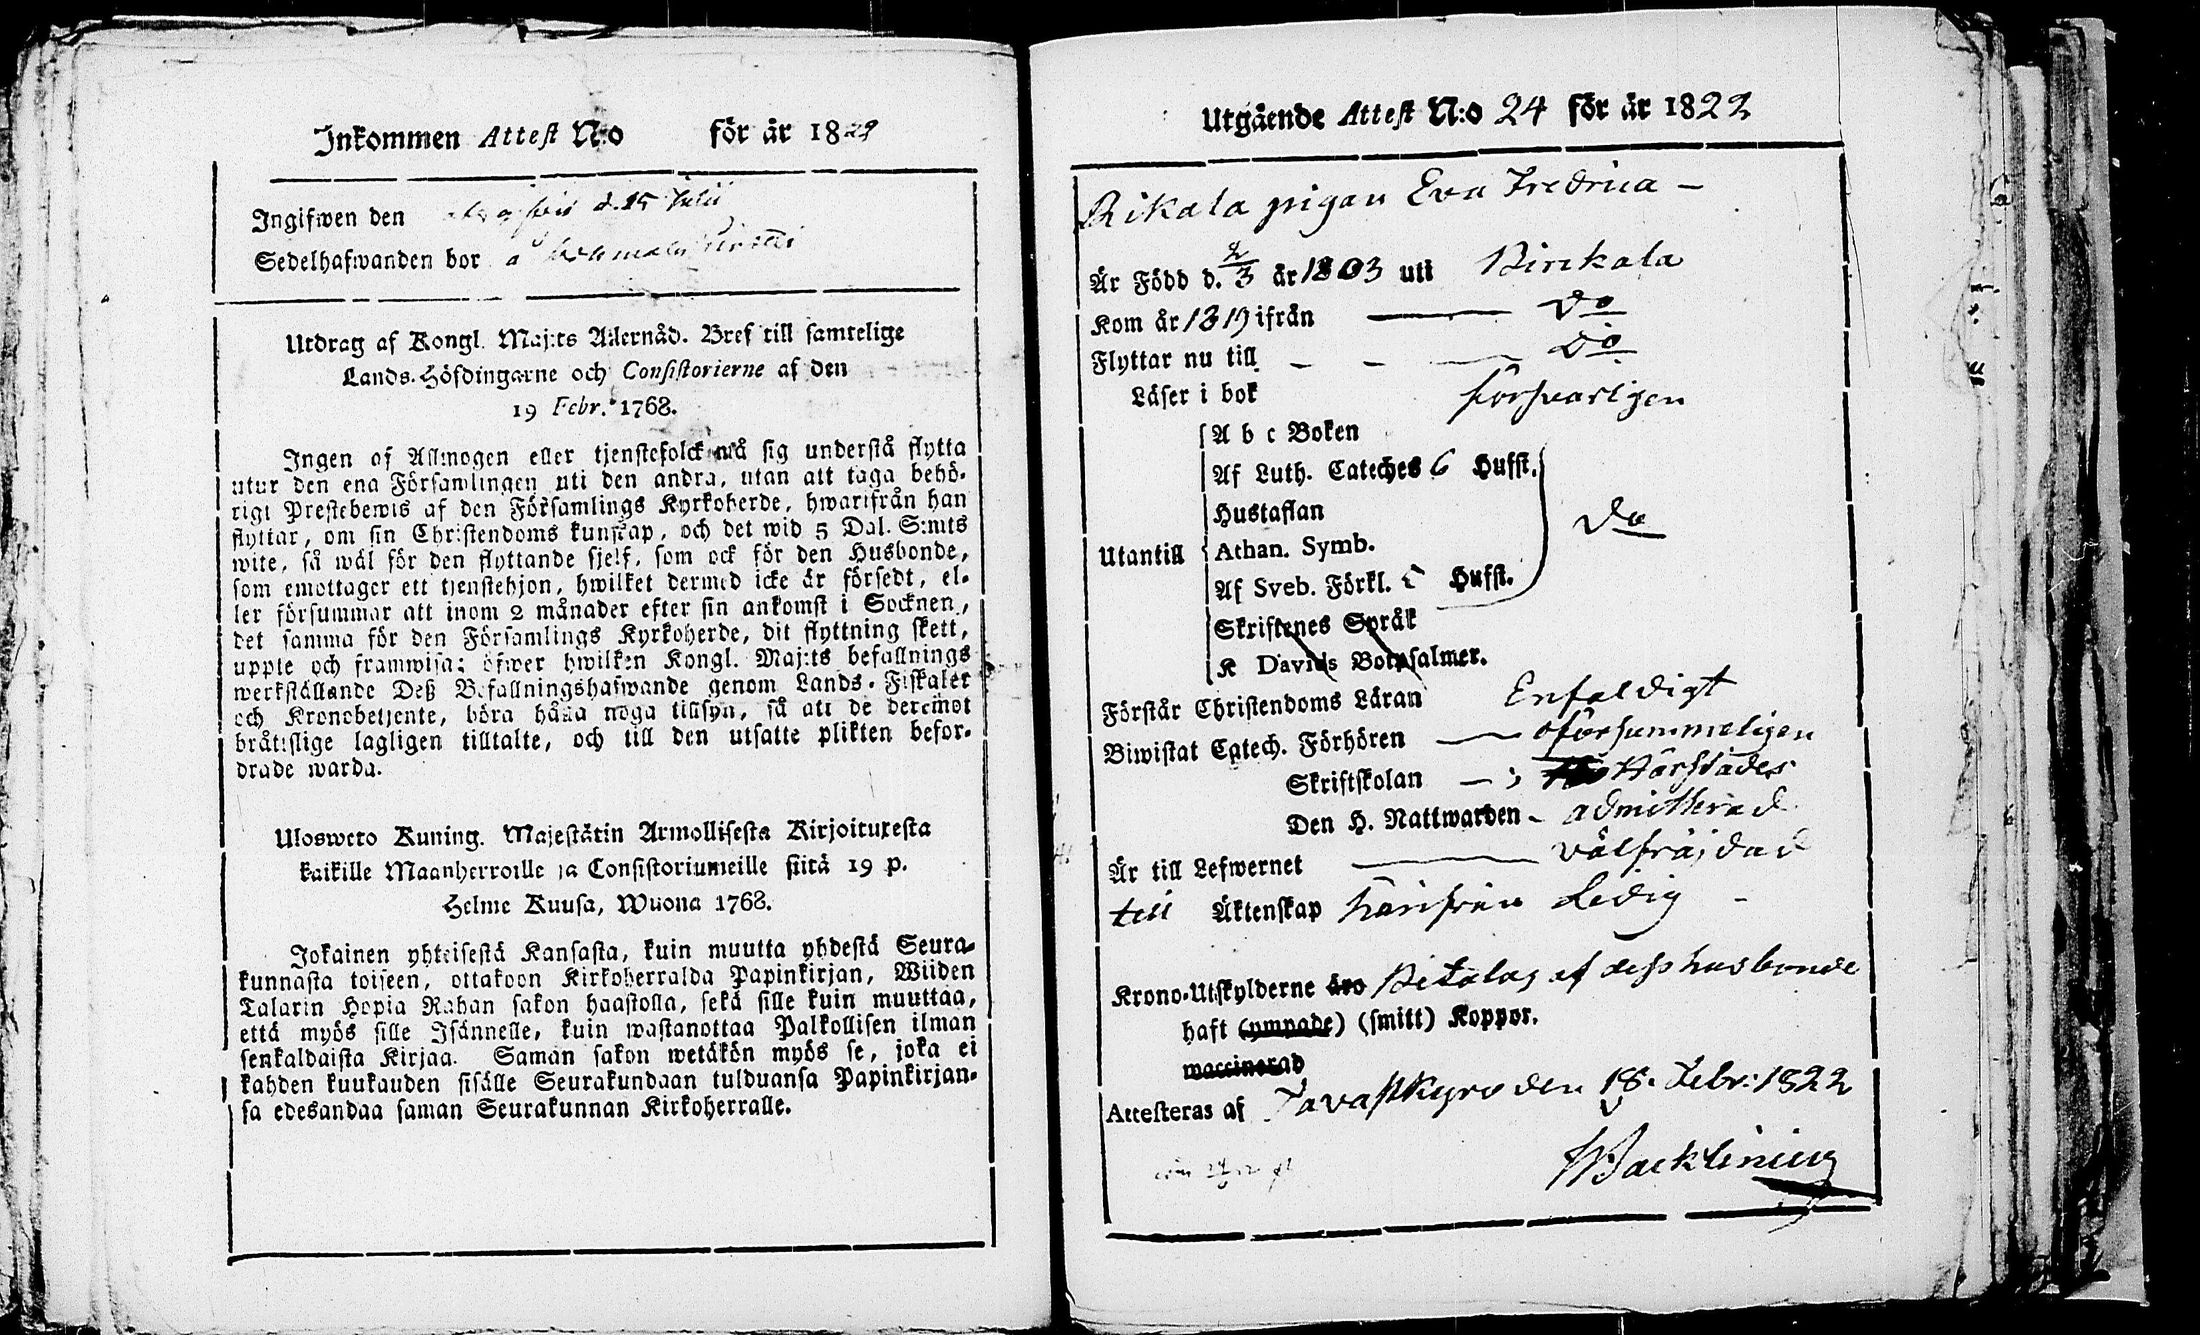 Inkommen Attest N:o för år 1822
Ingifwen den d. 15 Julii
Sedelhafwanden bor å
Utdrag af Kongl. Maj:ts Allernåd. Bref till samtelige
Lands-Höfdingarne och Consistorierne af den
19 Febr. 1768.
Ingen af Allmogen eller tjenstefolck må sig understå flytta
utur den ena Församlingen uti den andra, utan att taga behö-
rigt Prestebewis af den Församlings Kyrkoherde, hwarifrån han
flyttar, om sin Christendoms kunskap, och det wid 5 Dal. S:mts
wite, så wäl för den flyttande sjelf, som ock för den Husbonde,
som emottager ett tjenstehjon, hwilket dermed icke är försedt, el-
ler försummar att inom 2 månader efter sin ankomst i Socknen,
det samma för den Församlings Kyrkoherde, dit flyttning skett,
uppte och framwisa; öfwer hwilken Kongl. Maj:ts befallnings
werkställande Deß Befallningshafwande genom Lands-Fiskaler
och Kronobetjente, böra hålla noga tillsyn, så att de deremot
bråttslige lagligen tilltalte, och till den utsatte plikten befor-
drade warda.
Ulosweto Kuning. Majestätin Armollisesta Kirjoituxesta
kaikille Maanherroille ja Consistoriumeille siitä 19 p.
Helme Kuusa, Wuona 1768.
Jokainen yhteisestä Kansasta, kuin muutta yhdestä Seura-
kunnasta toiseen, ottakoon Kirkoherralda Papinkirjan, Wiiden
Talarin Hopia Rahan sakon haastolla, sekä sille kuin muuttaa,
että myös sille Isännelle, kuin wastanottaa Palkollisen ilman
senkaldaista Kirjaa. Saman sakon wetäkön myös se, joka ei
kahden kuukauden sisälle Seurakundaan tulduansa Papinkirjan-
sa edesandaa saman Seurakunnan Kirkoherralle.
Utgående Attest N:o 24 för år 1822
Rikala pigan Eva Fredrica -
Är Född d. 2/3 år 1803 uti Birckala
Kom år 1819 ifrån Do
Flyttar nu till Do
Läser i bok försvarligen
A b c Boken
Af Luth. Cateches 6 Hufst.
Hustaflan
Do
Utantill Athan. Symb.
Af Sveb. Förkl. 5 Hufst.
Skriftenes Språk
K Davids Botpsalmer.
Förstår Christendoms Läran Enfaldigt
Biwistat Catech. Förhören oförsummeligen
Skriftskolan Härstädes
Den H. Nattwarden - admitterad
Är till Lefwernet välfräjdad
till Äktenskap härifrån Ledig -
Krono-Utskylderne äro Betalas af dess husbonde
haft (ympade) (smitt) Koppor.
waccinerad
Attesteras af Tavastkyro den 18. Febr: 1822
WBacklinius